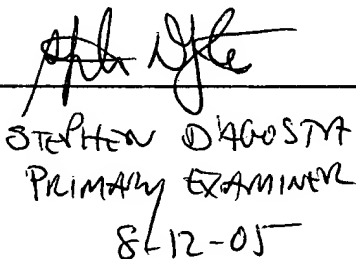 STEPHEN D'AGOSTA
PRIMARY EXAMINER
8-12-05